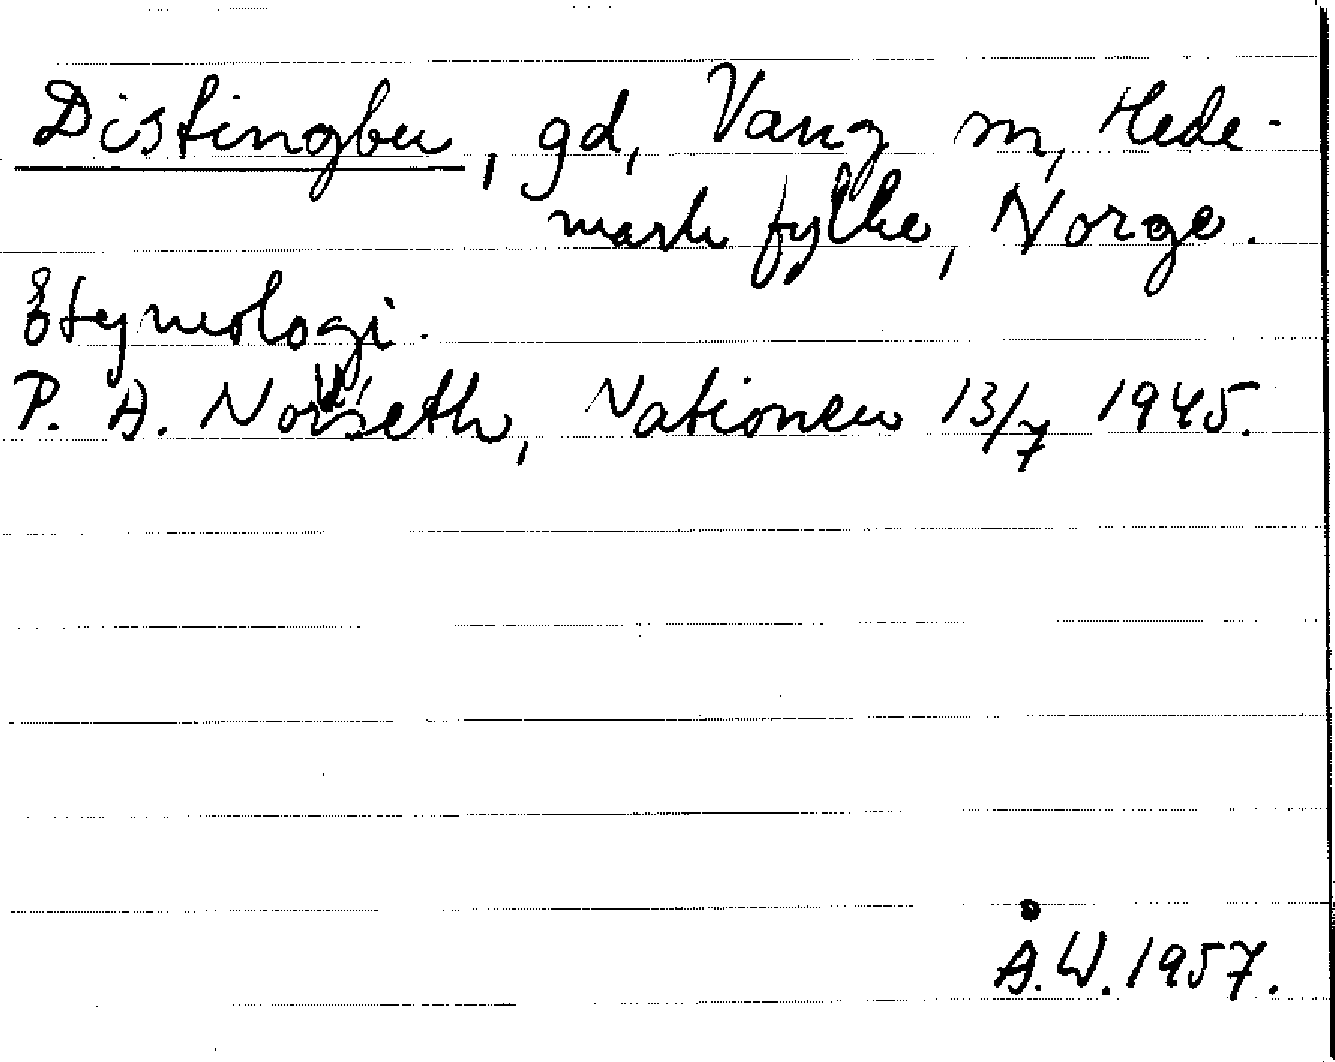 Distingbu, gd, Vang sn, Hede-
mark fylke, Norge.
Etymologi.
P. A. Norseth, Nationen 13/7 1945.
Å.W. 1957.